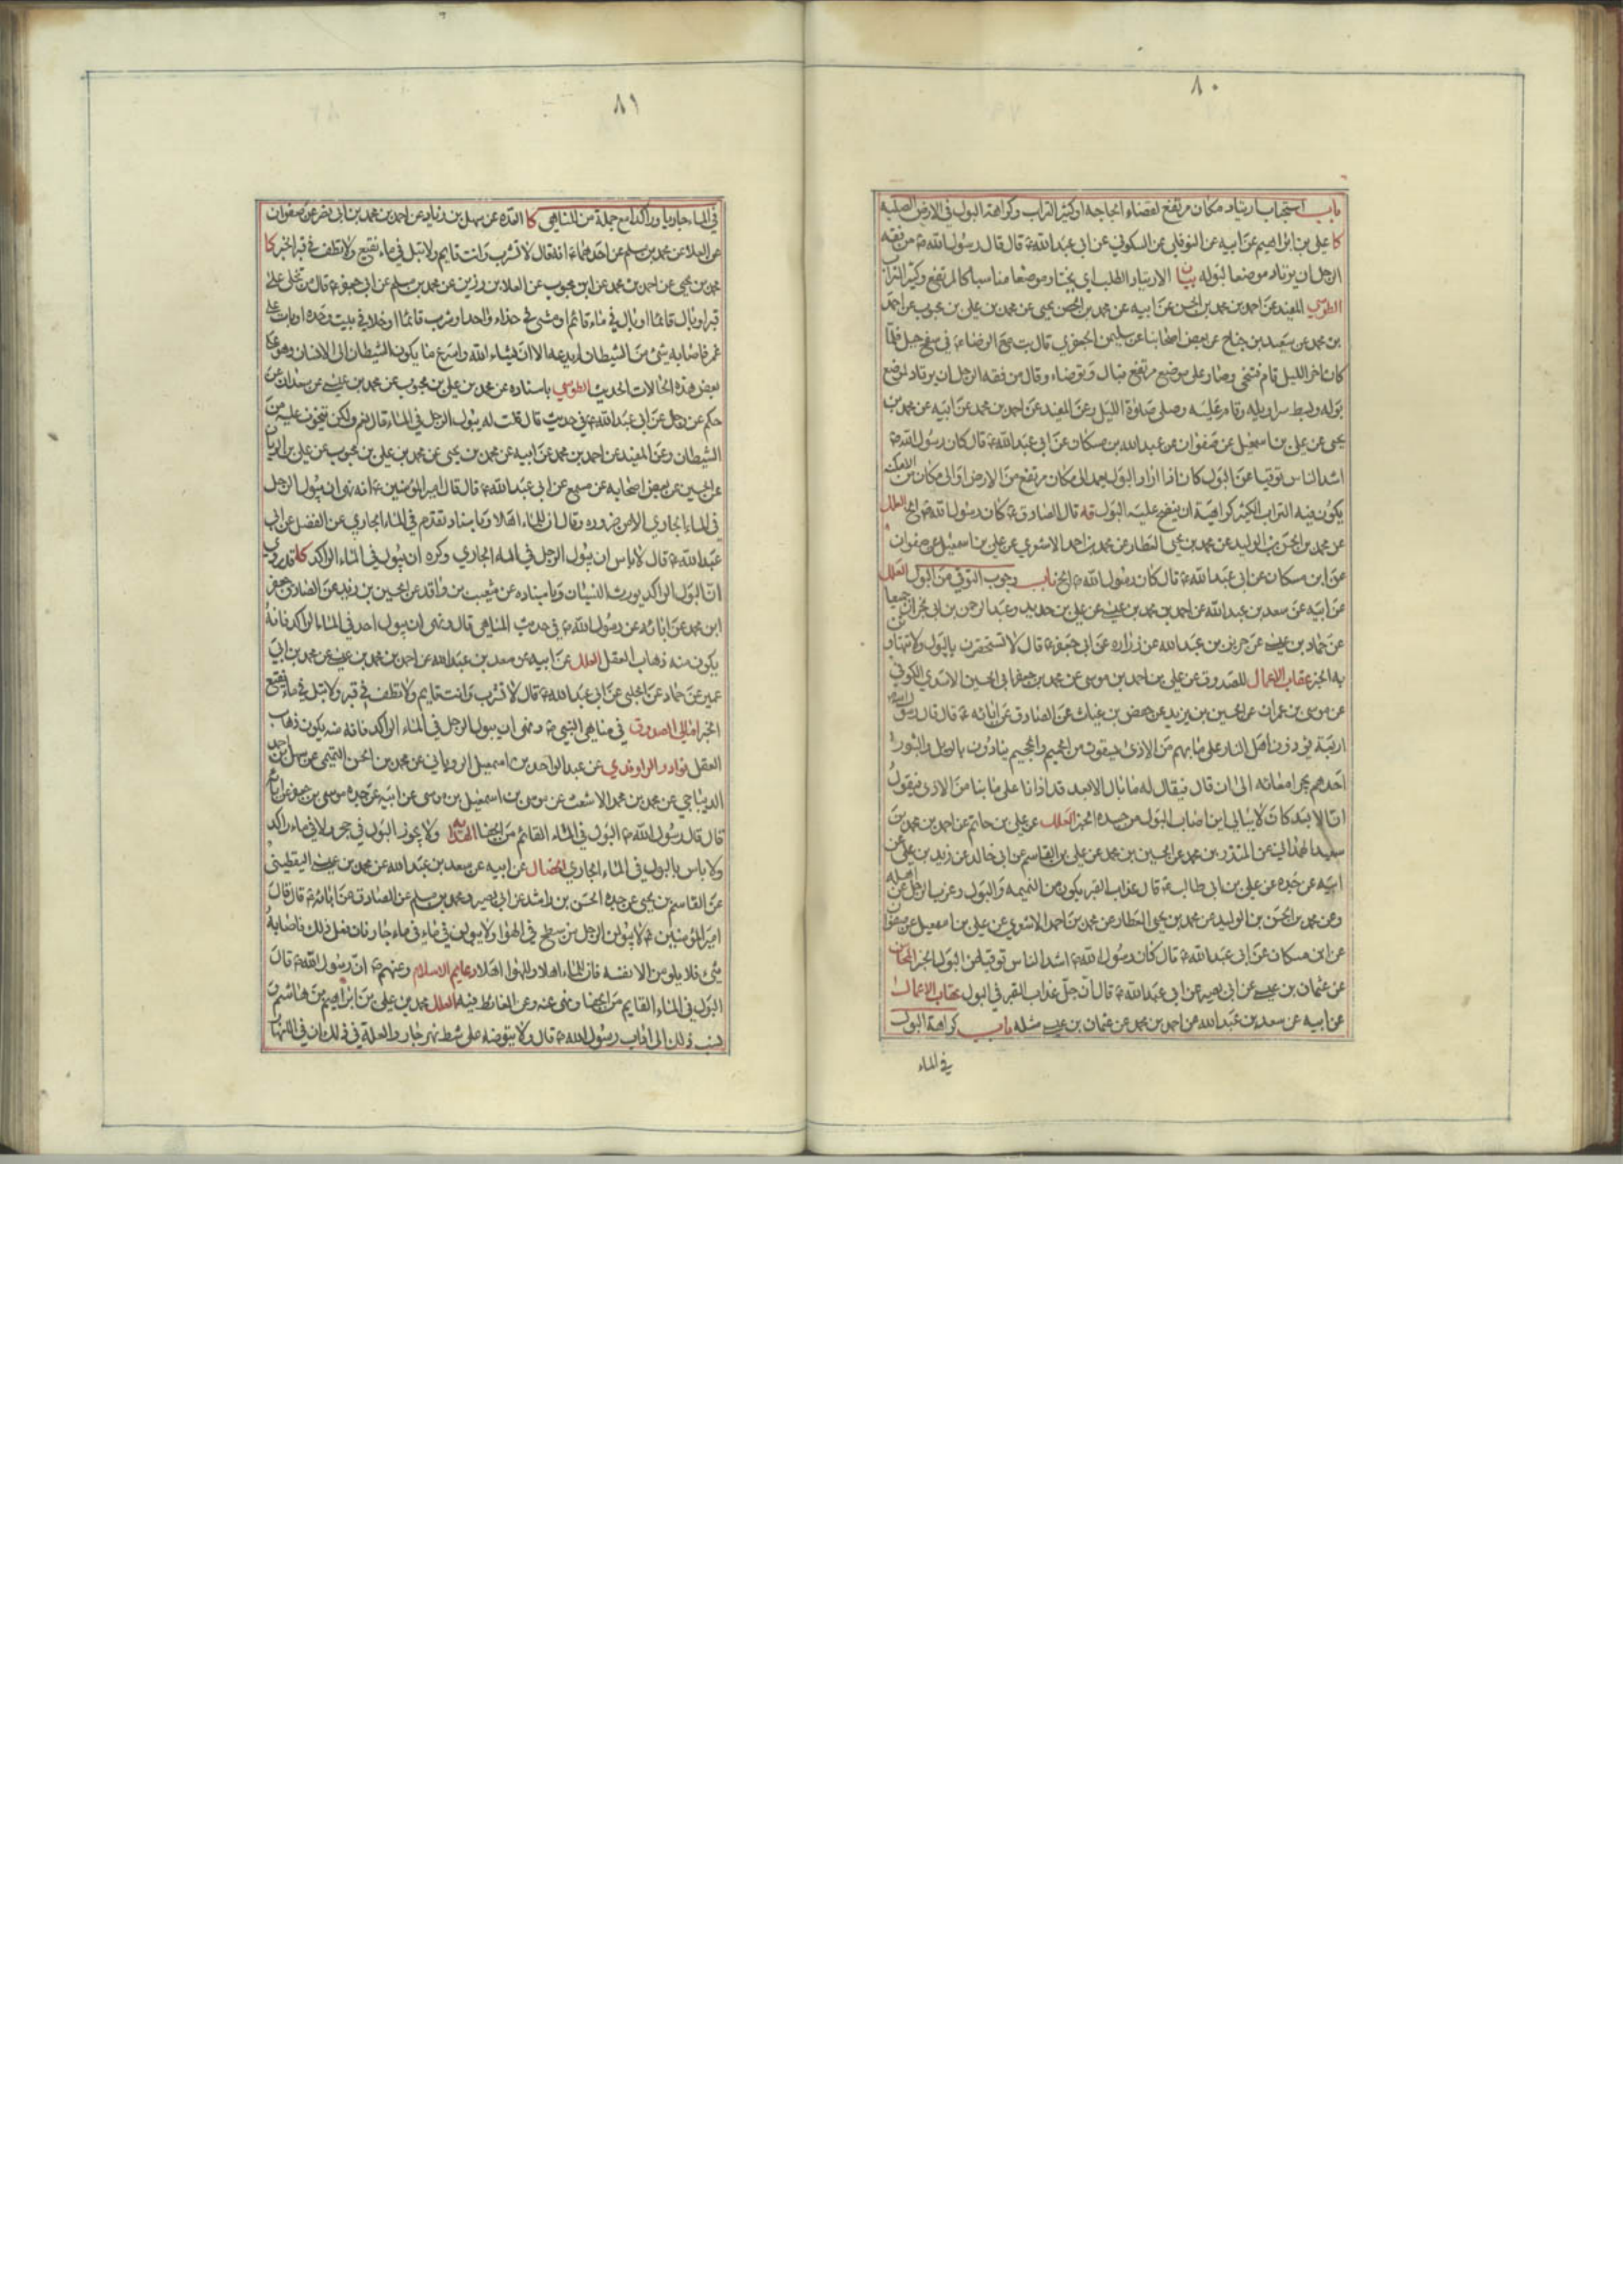 ٨٠
باب استحباب ارتياد مكان مرتفع لقضاء الحاجة او كثير التراب وكراهة البول في الارض الصلبة
كا علي بن ابراهيم عن ابيه عن النوفلي عن السكوني عن ابي عبد الله ع قال قال رسول الله ص من فقه
الرجل ان يرتاد موضعا لبوله بيان الارتياد الطلب اي يختار موضعا مناسبا كالمرتفع وكثير التراب
الطوسي المفيد عن احمد بن محمد بن الحسن عن ابيه عن محمد بن يحيى عن محمد بن علي بن محبوب عن احمد
بن محمد عن سعيد بن جناح عن بعض اصحابنا عن سليمن الجعفري قال بت مع الرضا ع في سفح جبل فلما
كان اخر الليل قام فتنحى وصار على موضع مرتفع فبال وتوضاء وقال من فقه الرجل ان يرتاد لموضع
بوله وبسط سراويله وقام عليه وصلى صلوة الليل وعن المفيد عن احمد بن محمد عن ابيه عن محمد بن
يحيى عن علي بن اسمعيل عن صفوان عن عبد الله بن مسكان عن ابي عبد الله ع قال كان رسول الله ص
اشد الناس توقيا عن البول كان اذا اراد البول يعمد الى مكان مرتفع من الارض او الى مكان من الامكنة
يكون فيه التراب الكثير كراهية ان ينضح عليه البول قه قال الصادق ع كان رسول الله ص الخ العلل
عن محمد بن الحسن بن الوليد عن محمد بن يحيى العطار عن محمد بن احمد الاشعري عن علي بن اسمعيل عن صفوان
عن ابن مسكان عن ابي عبد الله ع قال كان رسول الله ص الخ باب وجوب التوقي من البول العلل
عن ابيه عن سعد بن عبد الله عن احمد بن محمد بن عيسى عن علي بن حديد وعبد الرحمن بن ابي نجران جميعا
عن حماد بن عيسى عن حريز بن عبد الله عن زرارة عن ابي جعفر ع قال لا تستحقرن بالبول ولا تتهاونن
به الخبر عقاب الاعمال للصدوق عن علي بن احمد بن موسى عن محمد بن جعفر ابي الحسين الاسدي الكوفي
عن موسى بن عمران عن الحسين بن يزيد عن حفص بن غياث عن الصادق عن ابائه ع قال قال رسول الله ص
اربعة يؤذون اهل النار على ما بهم من الاذى يسقون من الحميم والجحيم ينادون بالويل والثبور
احدهم يجر امعائه الى ان قال فيقال له ما بال الابعد قد اذانا على ما بنا من الاذى فيقول
ان الابعد كان لا يبالي اين اصاب البول من جسده الخبر العلل عن علي بن حاتم عن احمد بن محمد بن
سعيد الهمداني عن المنذر بن محمد عن الحسين بن محمد عن علي بن القاسم عن ابي خالد عن زيد بن علي عن
ابيه عن جده عن علي بن ابي طالب ع قال عذاب القبر يكون من النميمة والبول وعزب الرجل عن اهله
وعن محمد بن الحسن بن الوليد عن محمد بن يحيى العطار عن محمد بن احمد الاشعري عن علي بن اسمعيل عن صفوان
عن ابن مسكان عن ابي عبد الله ع قال كان رسول الله ص اشد الناس توقيا عن البول الخبر المحاسن
عن عثمان بن عيسى عن ابي بصير عن ابي عبد الله ع قال ان جل عذاب القبر في البول عقاب الاعمال
عن ابيه عن سعد بن عبد الله عن احمد بن محمد عن عثمان بن عيسى مثله باب كراهة البول
في الماء
٨١
في الماء جاريا وراكدا مع جملة من المناهي كا العدة عن سهل بن زياد عن احمد بن محمد بن ابي نصر عن صفوان
عن العلا عن محمد بن مسلم عن احدهما ع انه قال لا تشرب وانت قايم ولا تبل في ماء نقيع ولا تطف في قبر الخبر كا
محمد بن يحيى عن احمد بن محمد عن ابن محبوب عن العلا بن رزين عن محمد بن مسلم عن ابي جعفر ع قال من تخلى على
قبر او بال قائما او بال في ماء قائم او مشى في حذاء واحد او شرب قائما او خلا في بيت وحده او بات على
غمر فاصابه شئ من الشيطان لم يدعه الا ان يشاء الله واسرع ما يكون الشيطان الى الانسان وهو على
بعض هذه الحالات الحديث الطوسي باسناده عن محمد بن علي بن محبوب عن محمد بن عيسى عن سعدان عن
حكم عن رجل عن ابي عبد الله ع في حديث قال قلت له يبول الرجل في الماء قال نعم ولكن يتخوف عليه من
الشيطان وعن المفيد عن احمد بن محمد عن ابيه عن محمد بن يحيى عن محمد بن علي بن محبوب عن علي بن الريان
عن الحسين عن بعض اصحابه عن مسمع عن ابي عبد الله ع قال قال امير المؤمنين ع انه نهى ان يبول الرجل
في الماء الجاري الا من ضرورة وقال ان للماء اهلا وباسناد تقدم في الماء الجاري عن الفضل عن ابي
عبد الله ع قال لا باس ان يبول الرجل في الماء الجاري وكره ان يبول في الماء الراكد قد روي
ان البول الراكد يورث النسيان وباسناده عن شعيب بن واقد عن الحسين بن زيد عن الصادق جعفر
ابن محمد عن ابائه عن رسول الله ص في حديث المناهي قال ونهى ان يبول احد في الماء الراكد فانه
يكون منه ذهاب العقل العلل عن ابيه عن سعد بن عبد الله عن احمد بن محمد بن عيسى عن محمد بن ابي
عمير عن حماد عن الحلبي عن ابي عبد الله ع قال لا تشرب وانت قايم ولا تطف في قبر ولا تبل في ماء نقيع
الخبر امالي الصدوق في مناهي النبي ص ونهى ان يبول الرجل في الماء الراكد فانه منه يكون ذهاب
العقل نوادر الراوندي عن عبد الواحد بن اسمعيل الروياني عن محمد بن الحسن التميمي عن سهل بن احمد
الديباجي عن محمد بن محمد الاشعث عن موسى بن اسمعيل بن موسى عن ابيه عن جده موسى بن جعفر عن ابائه
قال قال رسول الله ص البول في الماء القائم من الجفا الهداية ولا يجوز البول في جحر ولا في ماء راكد
ولا باس بالبول في الماء الجاري الخصال عن ابيه عن سعد بن عبد الله عن محمد بن عيسى اليقطيني
عن القاسم بن يحيى عن جده الحسن بن راشد عن ابي بصير ومحمد بن مسلم عن الصادق عن ابائه ع قال قال
امير المؤمنين ع لا يبولن الرجل من سطح في الهوا ولا يبولن في ماء جار فان فعل ذلك فاصابه
شئ فلا يلومن الا نفسه فان للماء اهلا وللهوا اهلا دعايم الاسلام وعنهم ع ان رسول الله ص قال
البول في الماء القايم من الجفا ونهى عنه وعن الغائط فيه العلل محمد بن علي بن ابراهيم بن هاشم
ذلك الى اداب رسول الله ص قال ولا يتوضه على شط نهر جار والعلة في ذلك ان في الانهار